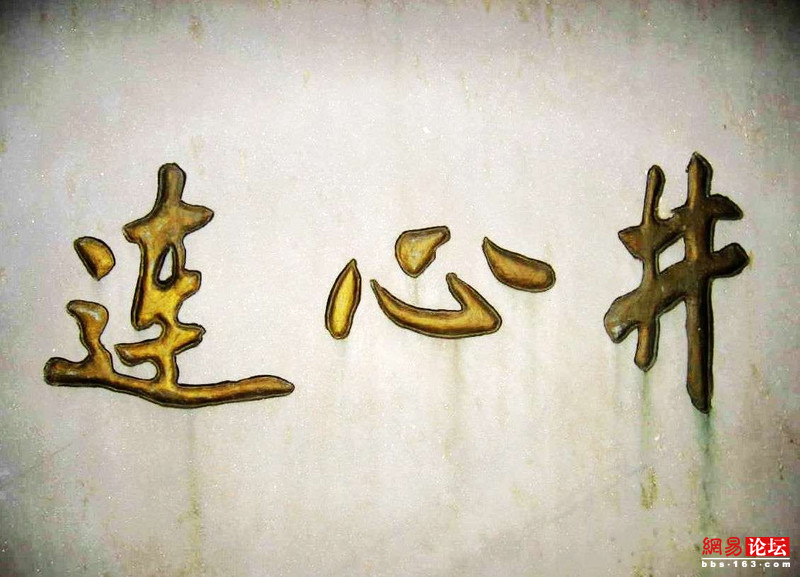 连心井
網易论坛
bbs·163.com